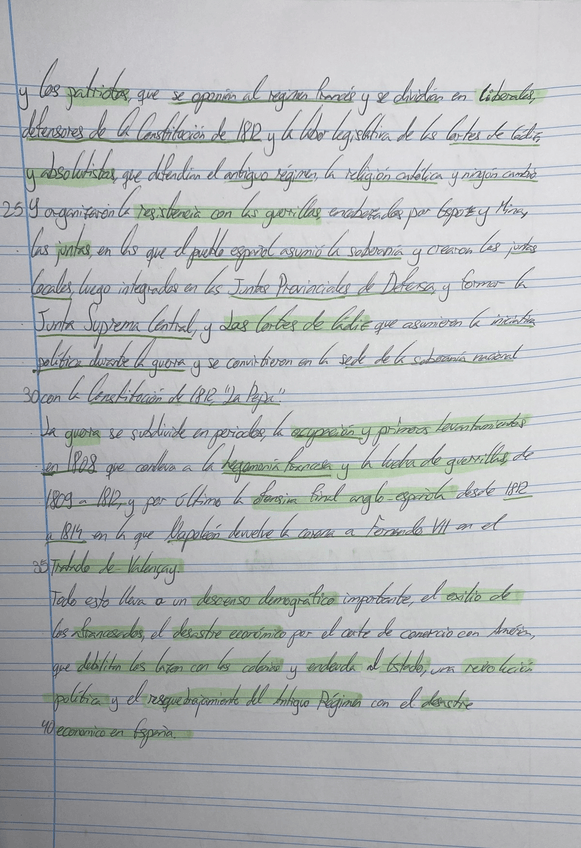 y los patriotas, que se oponían al régimen francés y se dividían en liberales,
defensores de la Constitución de 1812 y la labor legislativa de las Cortes de Cádiz
y absolutistas, que defendían el antiguo régimen, la religión católica y ningún cambio
25 Y organizaron la resistencia con las guerrillas encabezadas por Espoz y Mina,
las juntas, en las que el pueblo español asumió la soberanía y crearon las juntas
locales, luego integradas en las Juntas Provinciales de Defensa, y formar la
Junta Suprema Central, y Las Cortes de Cádiz que asumieron la iniciativa
política durante la guerra y se convirtieron en la sede de la soberanía nacional
30 con la Constitución de 1812, "La Pepa".
La guerra se subdivide en periodos, la ocupación y primeros levantamientos
en 1808 que conlleva a la hegemonía francesa y la lucha de guerrillas de
1809 a 1812, y por último la ofensiva final anglo-española desde 1812
a 1814 en la que Napoleón devuelve la corona a Fernando VII en el
35 Tratado de Valençay.
Todo esto lleva a un descenso demográfico importante, el exilio de
los afrancesados, el desastre económico por el corte de comercio con América,
que debilita los lazos con las colonias y endeuda al Estado, una revolución
política y el resquebrajamiento del Antiguo Régimen con el desastre
40 económico en España.